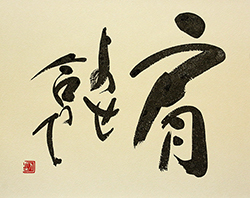 肩
よせ
合って